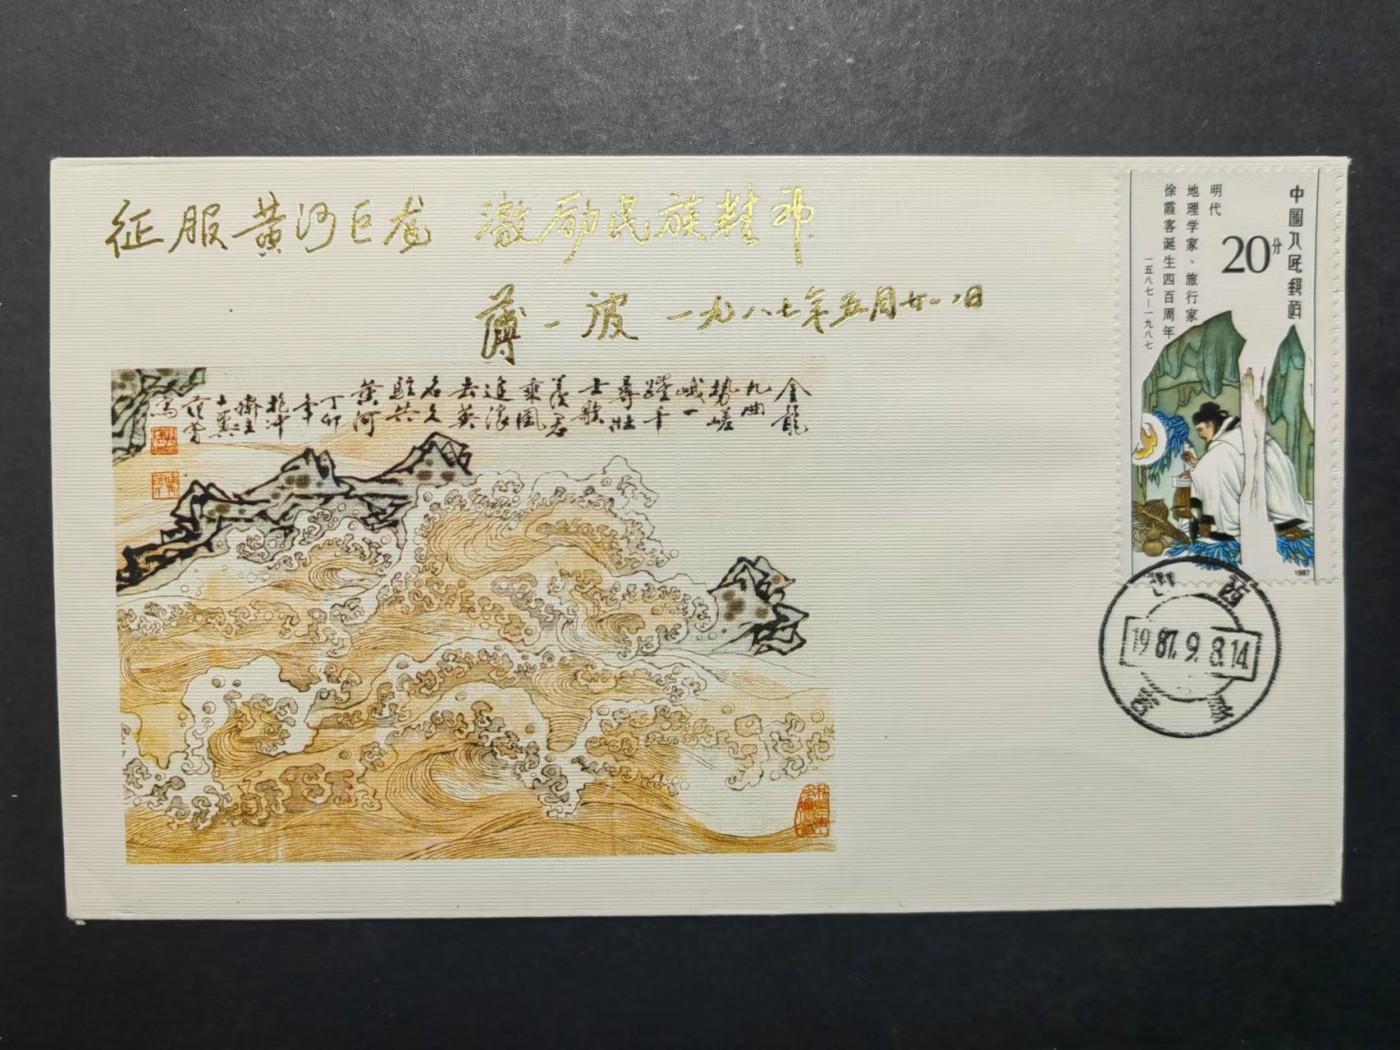 征服黄河巨龙 激励民族精神
薄一波 一九八七年五月廿八日
金龍
九曲
勢嵯
峨一
躍千
尋壯
士歌
羨君
乘風
追浪
去英
名久
駐共
黄河
丁卯
年
抱冲
齋主
十翼
范曾
寫
中國人民郵政
20分
明代
地理学家、旅行家
徐霞客诞生四百周年
一五八七—一九八七
1987
西
1987.9.8.14